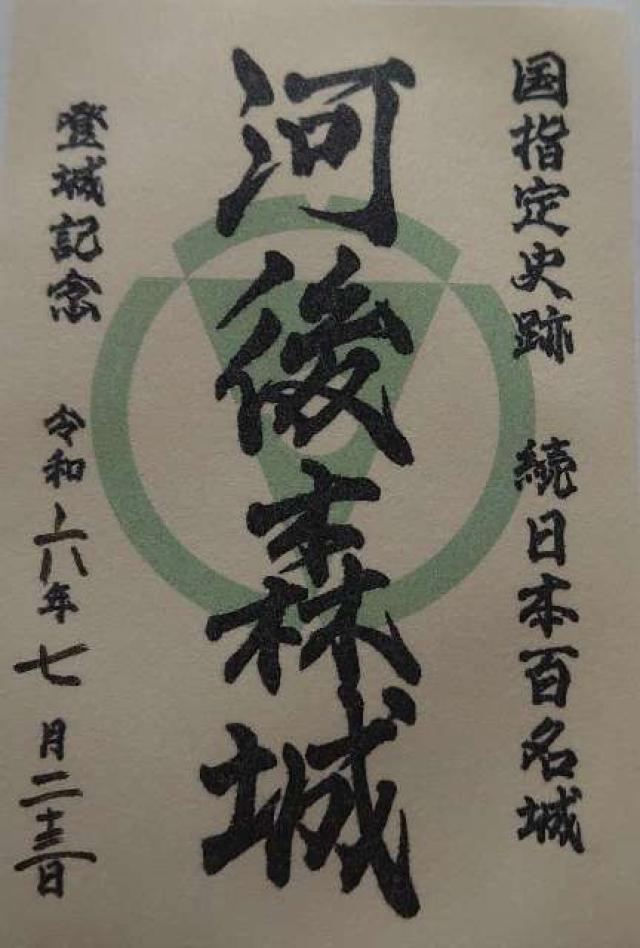 国指定史跡 続日本百名城
河後森城
登城記念 令和六年七月二十三日